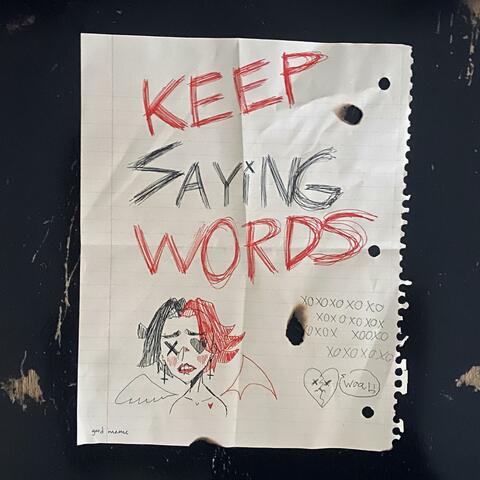 KEEP
SAYiNG
WORDS
XOXOXO XO XO
XOX O XO XOX
OXOX XOOXO
XO XO XO XO
woah